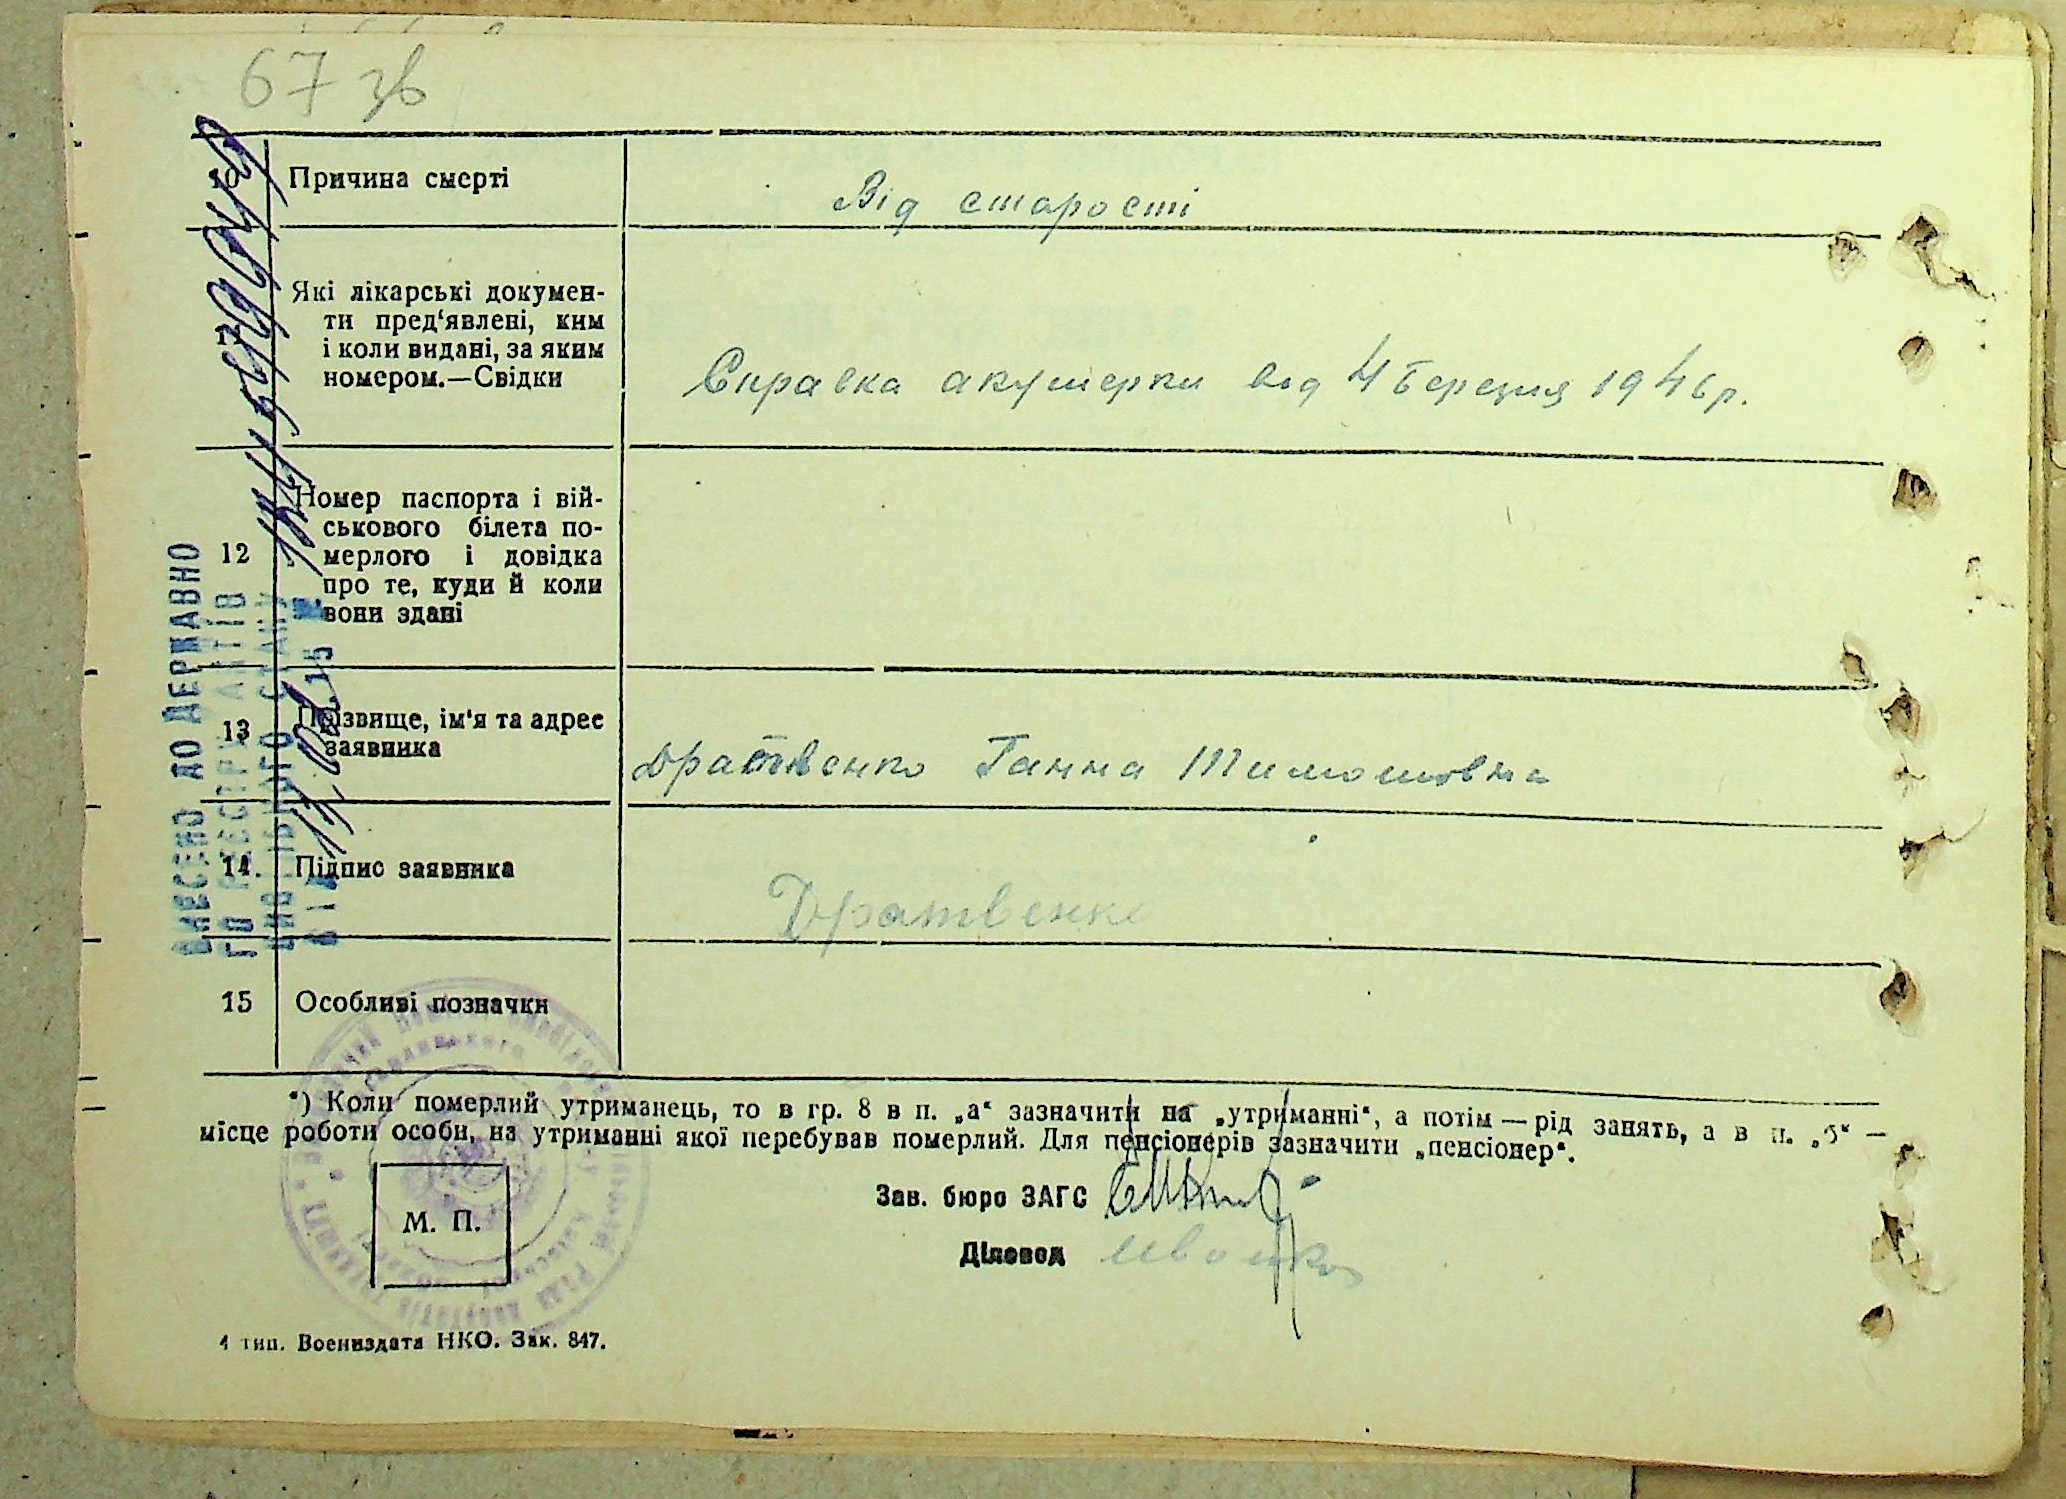 67 зв
10 Причина смерті
Від старості
11 Які лікарські докумен-
ти пред‘явлені, ким
і коли видані, за яким
номером.—Свідки
Справка акушерки від 4 березня 1946 р.
Номер паспорта і вій-
ськового білета по-
12 мерлого і довідка
про те, куди й коли
вони здані
13 Прізвище, ім'я та адрес
заявника
Дратвенко Ганна Тимошовна
14. Підпис заявника
Дратвенко
15 Особливі позначки
*) Коли померлий утриманець, то в гр. 8 в п. „а“ зазначити на „утриманні“, а потім — рід занять, а в п. „б“ —
місце роботи особи, на утриманні якої перебував померлий. Для пенсіонерів зазначити „пенсіонер“.
Зав. бюро ЗАГС
М. П.
Діловод
4 тип. Воениздата НКО. Зак. 847.
ВНЕСЕНО ДО ДЕРЖАВНО
ГО РЕЄСТРУ АКТІВ
ЦИВІЛЬНОГО СТАНУ
ВІД